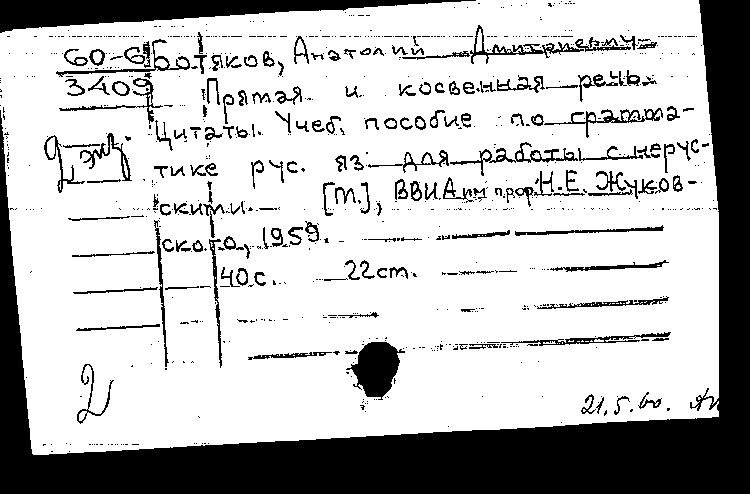 60-6 Ботяков, Анатолий Дмитриевич
3409 Прямая и косвенная речь.
Цитаты. Учеб. пособие по грамма-
2 экз. тике рус. яз. для работы с нерус-
скими. [М.], ВВИА им проф. Н.Е. Жуков-
ского, 1959.
40 с. 22 cm.
2
21.5.60.